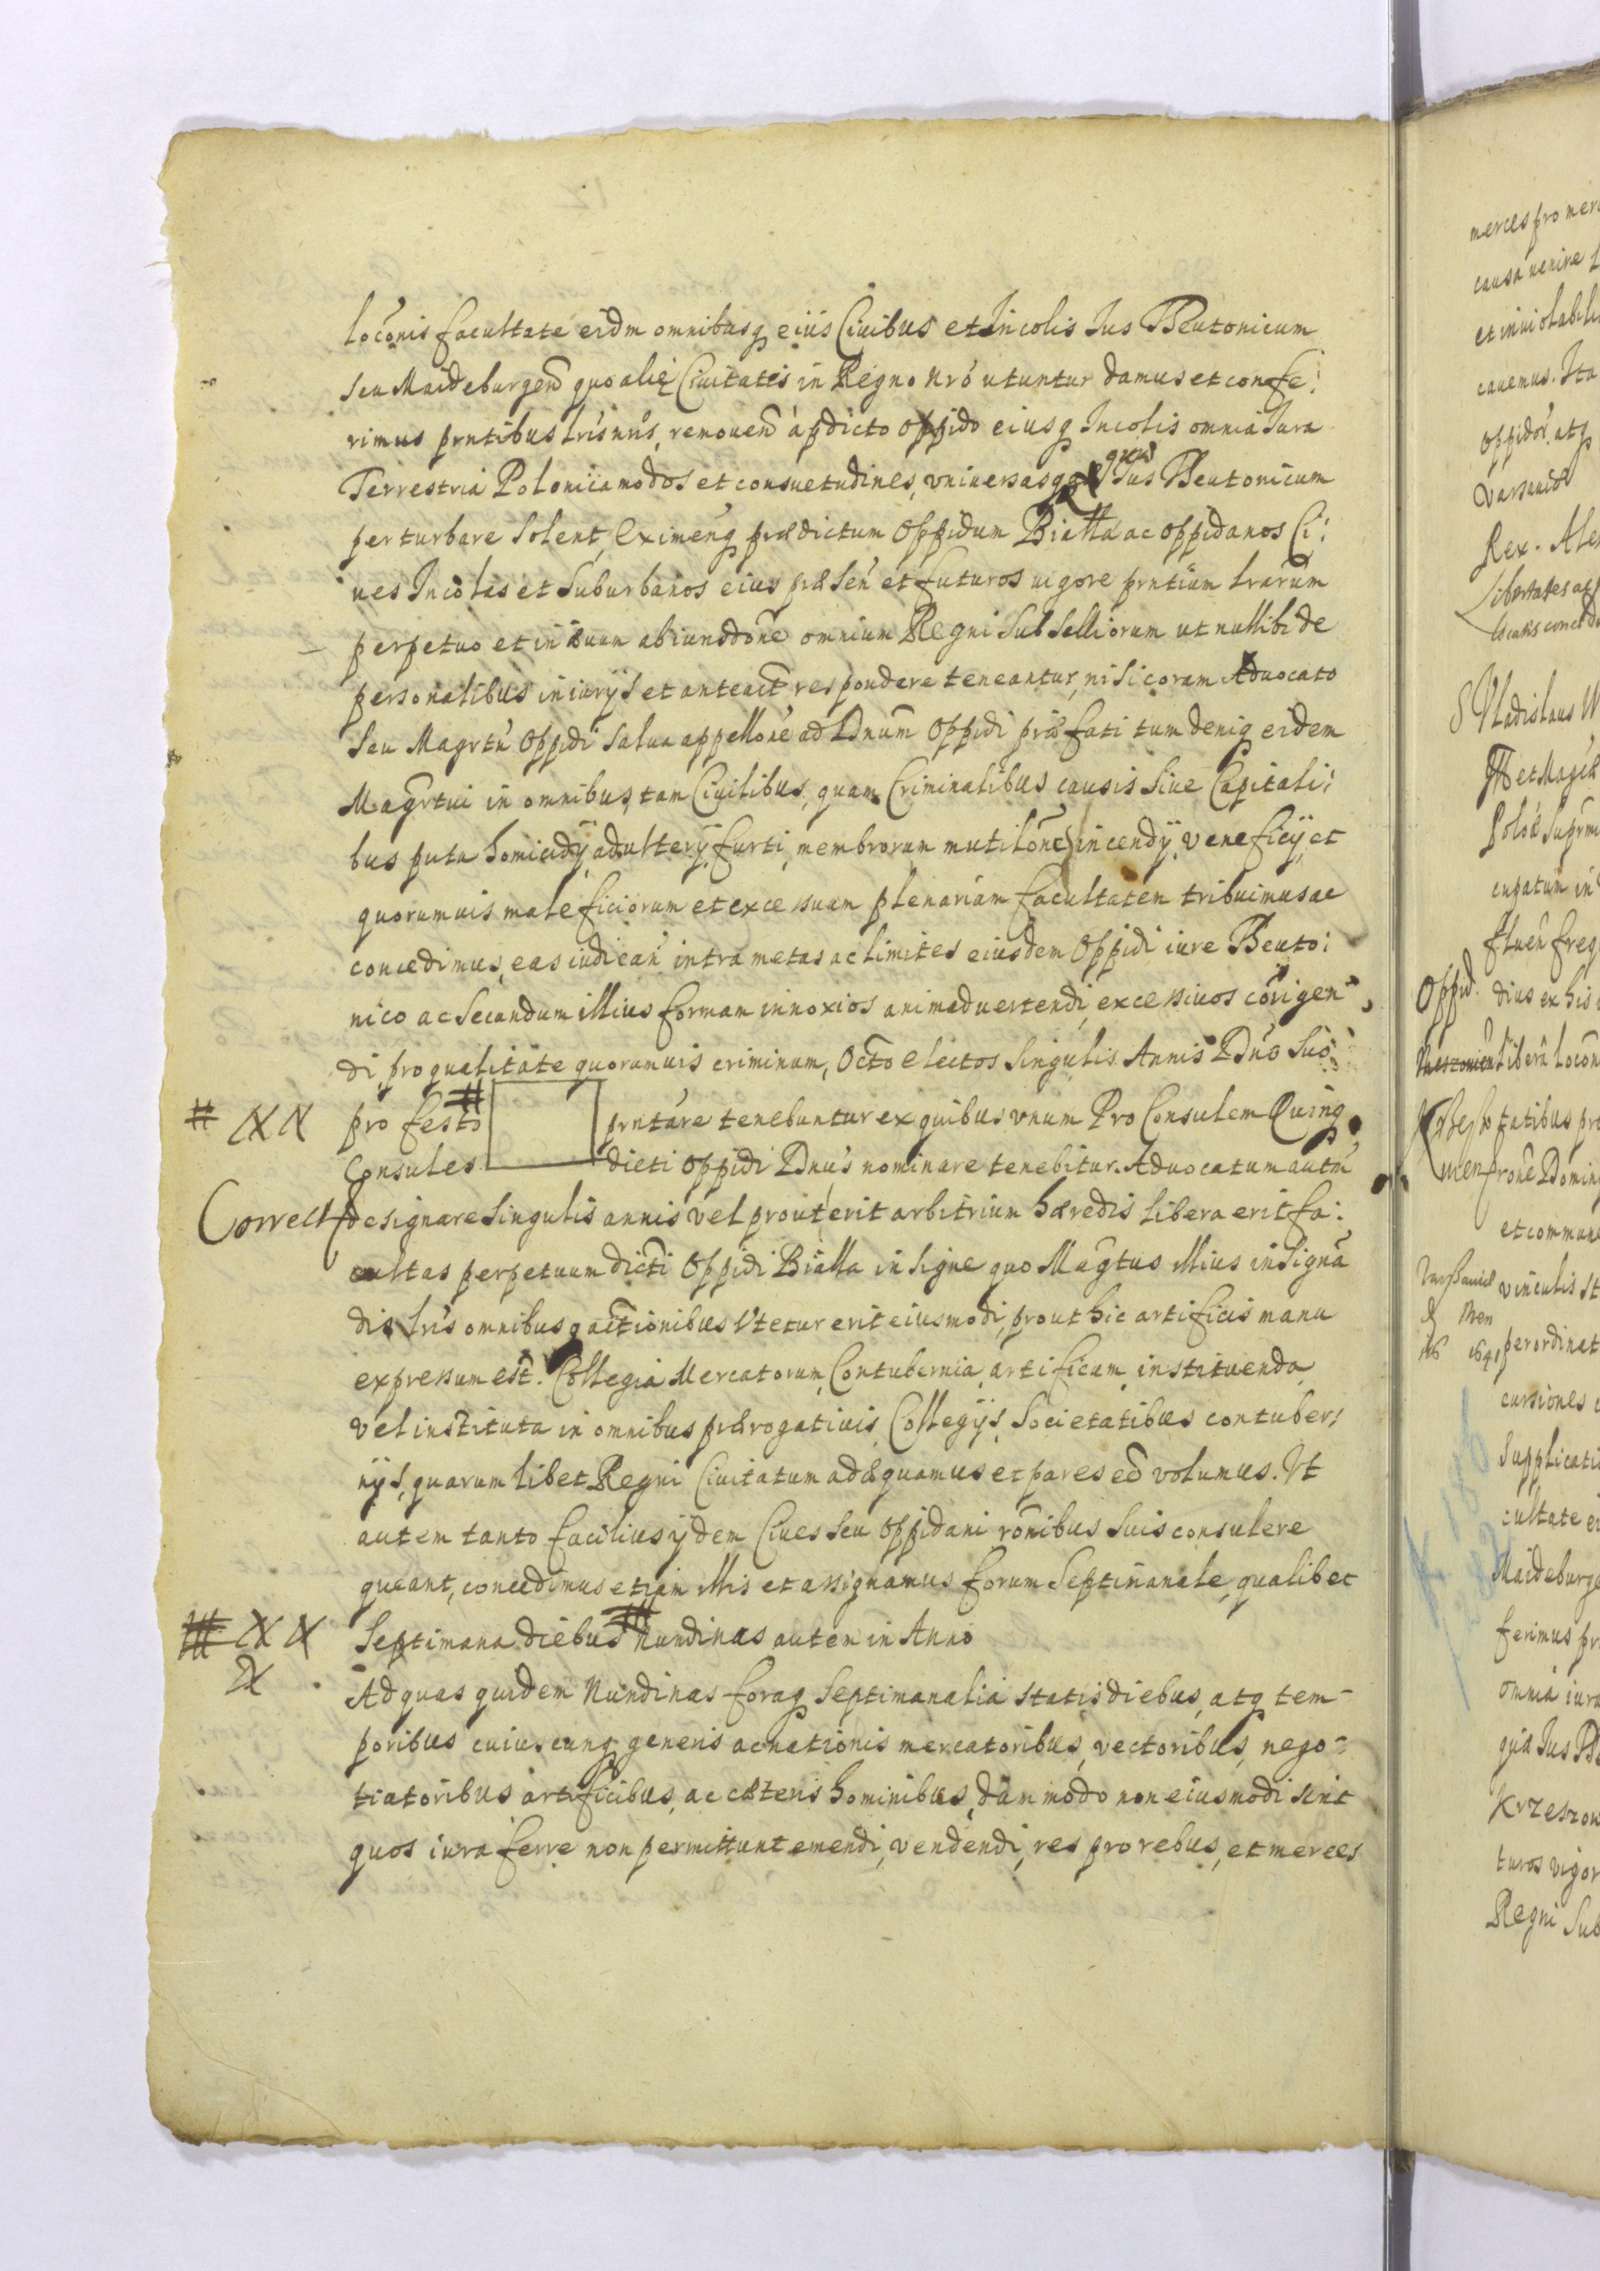 loconis facultate eidm omnibusq eius Ciuibus et Incolis Ius Theutonicum
seu Maideburgen quo alię Ciuitates in Regno nro utuntur damus et confe:
rimus prntibus lris nris, remouen a pdicto oppido eiusq Incolis omnia Iura
Terrestria Polonica modos et consuetudines, vniuersasq quae Ius Theutonicum
perturbare solent, Eximenq prædictum Oppidum Bialla ac oppidanos Ci:
ues Incolas et suburbanos eius præsen et futuros uigore prntium lrarum
perpetuo et in æuum ab iurisdone omnium Regni Subselliorum ut nullibi de
personalibus iniurijs et anteact respondere teneantur, nisi coram Aduocato
seu Magrtu Oppidi salua appellone ad Dnum Oppidi præfati tum deniq eidem
Magrtui in omnibus, tam Ciuilibus, quam Criminalibus causis siue Capitali:
bus puta homicidij, adulterij, furti, membrorum mutilone, incendij, veneficij, et
quorumuis maleficiorum et excessuum plenariam facultatem tribuimus ac
concedimus, eas iudican intra metas ac limites eiusdem Oppidi iure Theuto:
nico ac secundum illius formam in noxios animaduertendi, excessiuos corrigen
di, pro qualitate quorumuis criminum, Octo electos singulis Annis Dno suo
# XX pro festo # prntare tenebuntur ex quibus vnum Pro Consulem Quinq
Consules dicti oppidi Dnus nominare tenebitur. Aduocatum autm
Correct designare singulis annis vel prout erit arbitrium hæredis libera erit fa:
cultas perpetuum dicti Oppidi Bialla insigne quo Magtus illius insigna
dis lris omnibusq actionibus Vtetur erit eiusmodi, prout hic artificis manu
expressum est. Collegia Mercatorum, Contubernia, artificum instituenda
vel instituta in omnibus prærogatiuis Collegijs, Societatibus contuber:
nijs, quarumlibet Regni Ciuitatum adæquamus et pares eo volumus. Vt
autem tanto facilius ijdem Ciues seu Oppidani ronibus suis consulere
queant, concedimus etiam illis et assignamus forum Septimanale, qualibet
# XX Septimana diebus # Nundinas autem in Anno
X
Ad quas quidem Nundinas foraq Septimanalia statis diebus, atq tem-
poribus cuiuscunq generis ac nationis mercatoribus, vectoribus, nego-
tiatoribus artificibus, ac cæteris hominibus, dummodo non eiusmodi sint
quos iura ferre non permittunt emendi, vendendi, res pro rebus, et merces
merces pro mer
causa uenire
et inuiolabili
cauemus. Ita
Oppidor atq
Varsauiæ
Rex.
Libertates
Vladislaus
Oppid. dius ex his
libera locon
tatibus
rone Domini
et commune
vinculis
perordinat
cursiones
supplicati
cultate ei
Maideburge
ferimus pr
omnia iura
quæ Ius Th
Krzeszow
turos vigor
Regni Sub